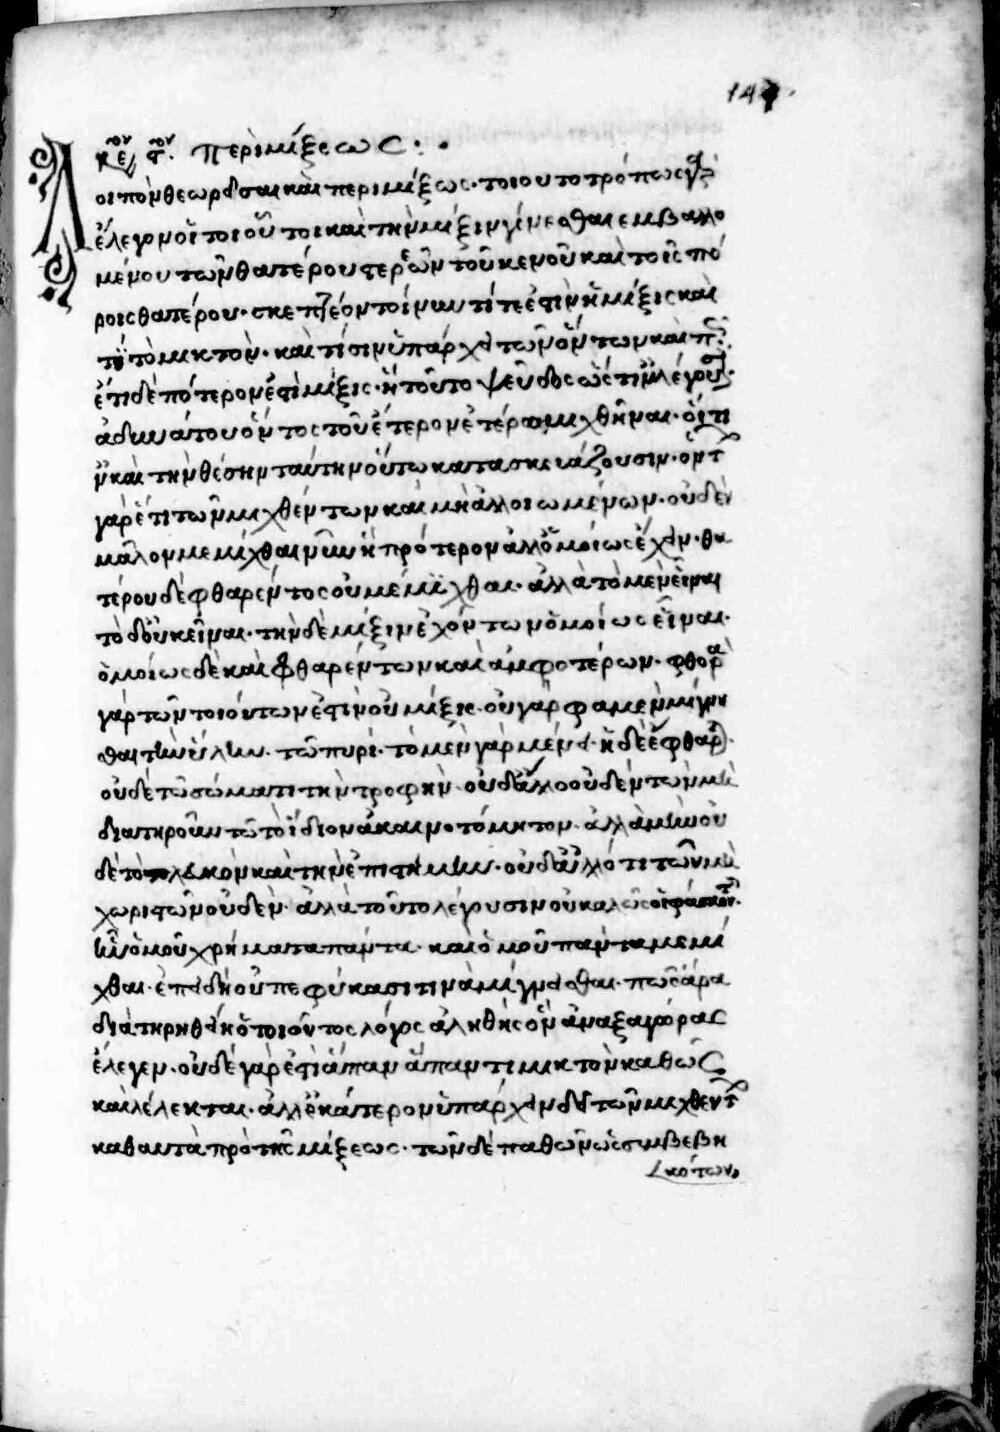 147.
κεφ. ϛον. Περὶ μίξεως :
Λοιπὸν θεωρῆσαι καὶ περὶ μίξεως· τοιούτο τρόπω
ἔλεγον οἵτοι οὗτοι καὶ τὴν μίξιν γίνεσθαι ἐμβαλλο
μένου τῶν θατέρου στερεῶν τοῦ κενοῦ καὶ τοῖς πό
ροις θατέρου· σκεπτέον τοίνυν τί τέ ἐστιν ἡ μίξις καὶ
τί τὸ μικτὸν· καὶ τίσιν ὑπάρχει τῶν ὄντων καὶ πῶς·
ἔτι δὲ πότερον ἐστὶ μίξις· ἢ τοῦτο ψεῦδος ὥς τινες λέγουσι·
ἀδυνάτου ὄντος τοῦ ἕτερον ἑτέρω μιχθῆναι· οἵ τι
νες καὶ τὴν θέσην ταύτην οὕτω κατασκευάζουσιν· ὄντων
γὰρ ἔτι τῶν μιχθέντων καὶ μὴ ἀλλοιωμένων· οὐδὲν
μᾶλον μεμίχθαι νῦν ἢ πρότερον ἀλλ' ὁμοίως ἔχειν· θα
τέρου δὲ φθαρέντος οὐ μεμίχθαι· ἀλλὰ τὸ μὲν εἶναι
τὸ δ' οὐκ εἶναι· τὴν δὲ μίξιν ἐχόντων ὁμοίως εἶναι·
ὁμοίως δὲ καὶ φθαρέντων καὶ ἀμφοτέρων· φθορὰ
γὰρ τῶν τοιούτων ἐστὶν οὐ μίξις· οὐ γὰρ φαμὲν μίγνυ
σθαι τὴν ὕλην τῶ πυρὶ· τὸ μὲν γὰρ μένει· ἡ δὲ ἔφθαρται·
οὐδὲ τῶ σώματι τὴν τροφὴν· οὐδ' ἄλλο οὐδὲν τῶν μὴ
διατηρούντων τὸ ἴδιον ἀκαινοτόμητον· ἀλλὰ μὴν οὐ
δὲ τὸ λευκὸν καὶ τὴν ἐπιστήμην· οὐδ' ἄλλό τι τῶν μὴ
χωριστῶν οὐδὲν· ἀλλὰ τοῦτο λέγουσιν οὐ καλῶς οἱ φάσκοντες
ἦν ὁμοῦ χρήματα πάντα· καὶ ὁμοῦ πάντα μεμί
χθαι· ἐπειδὴ οὐ πεφύκασί τινα μίγνεισθαι· πῶς ἄρα
διατηρηθείη ὁ τοιοῦτος λόγος ἀληθὴς ὃν ἀναξαγόρας
ἔλεγεν· οὐδὲ γάρ ἐστὶ ἅπαν ἅπαντι μικτὸν καθὼς
καὶ λέλεκται· ἀλλ' ἑκάτερον ὑπάρχειν δεῖ τῶν μιχθέντων
καθαυτὰ πρὸ τῆς μίξεως· τῶν δὲ παθῶν ὡς συμβεβη
κότων